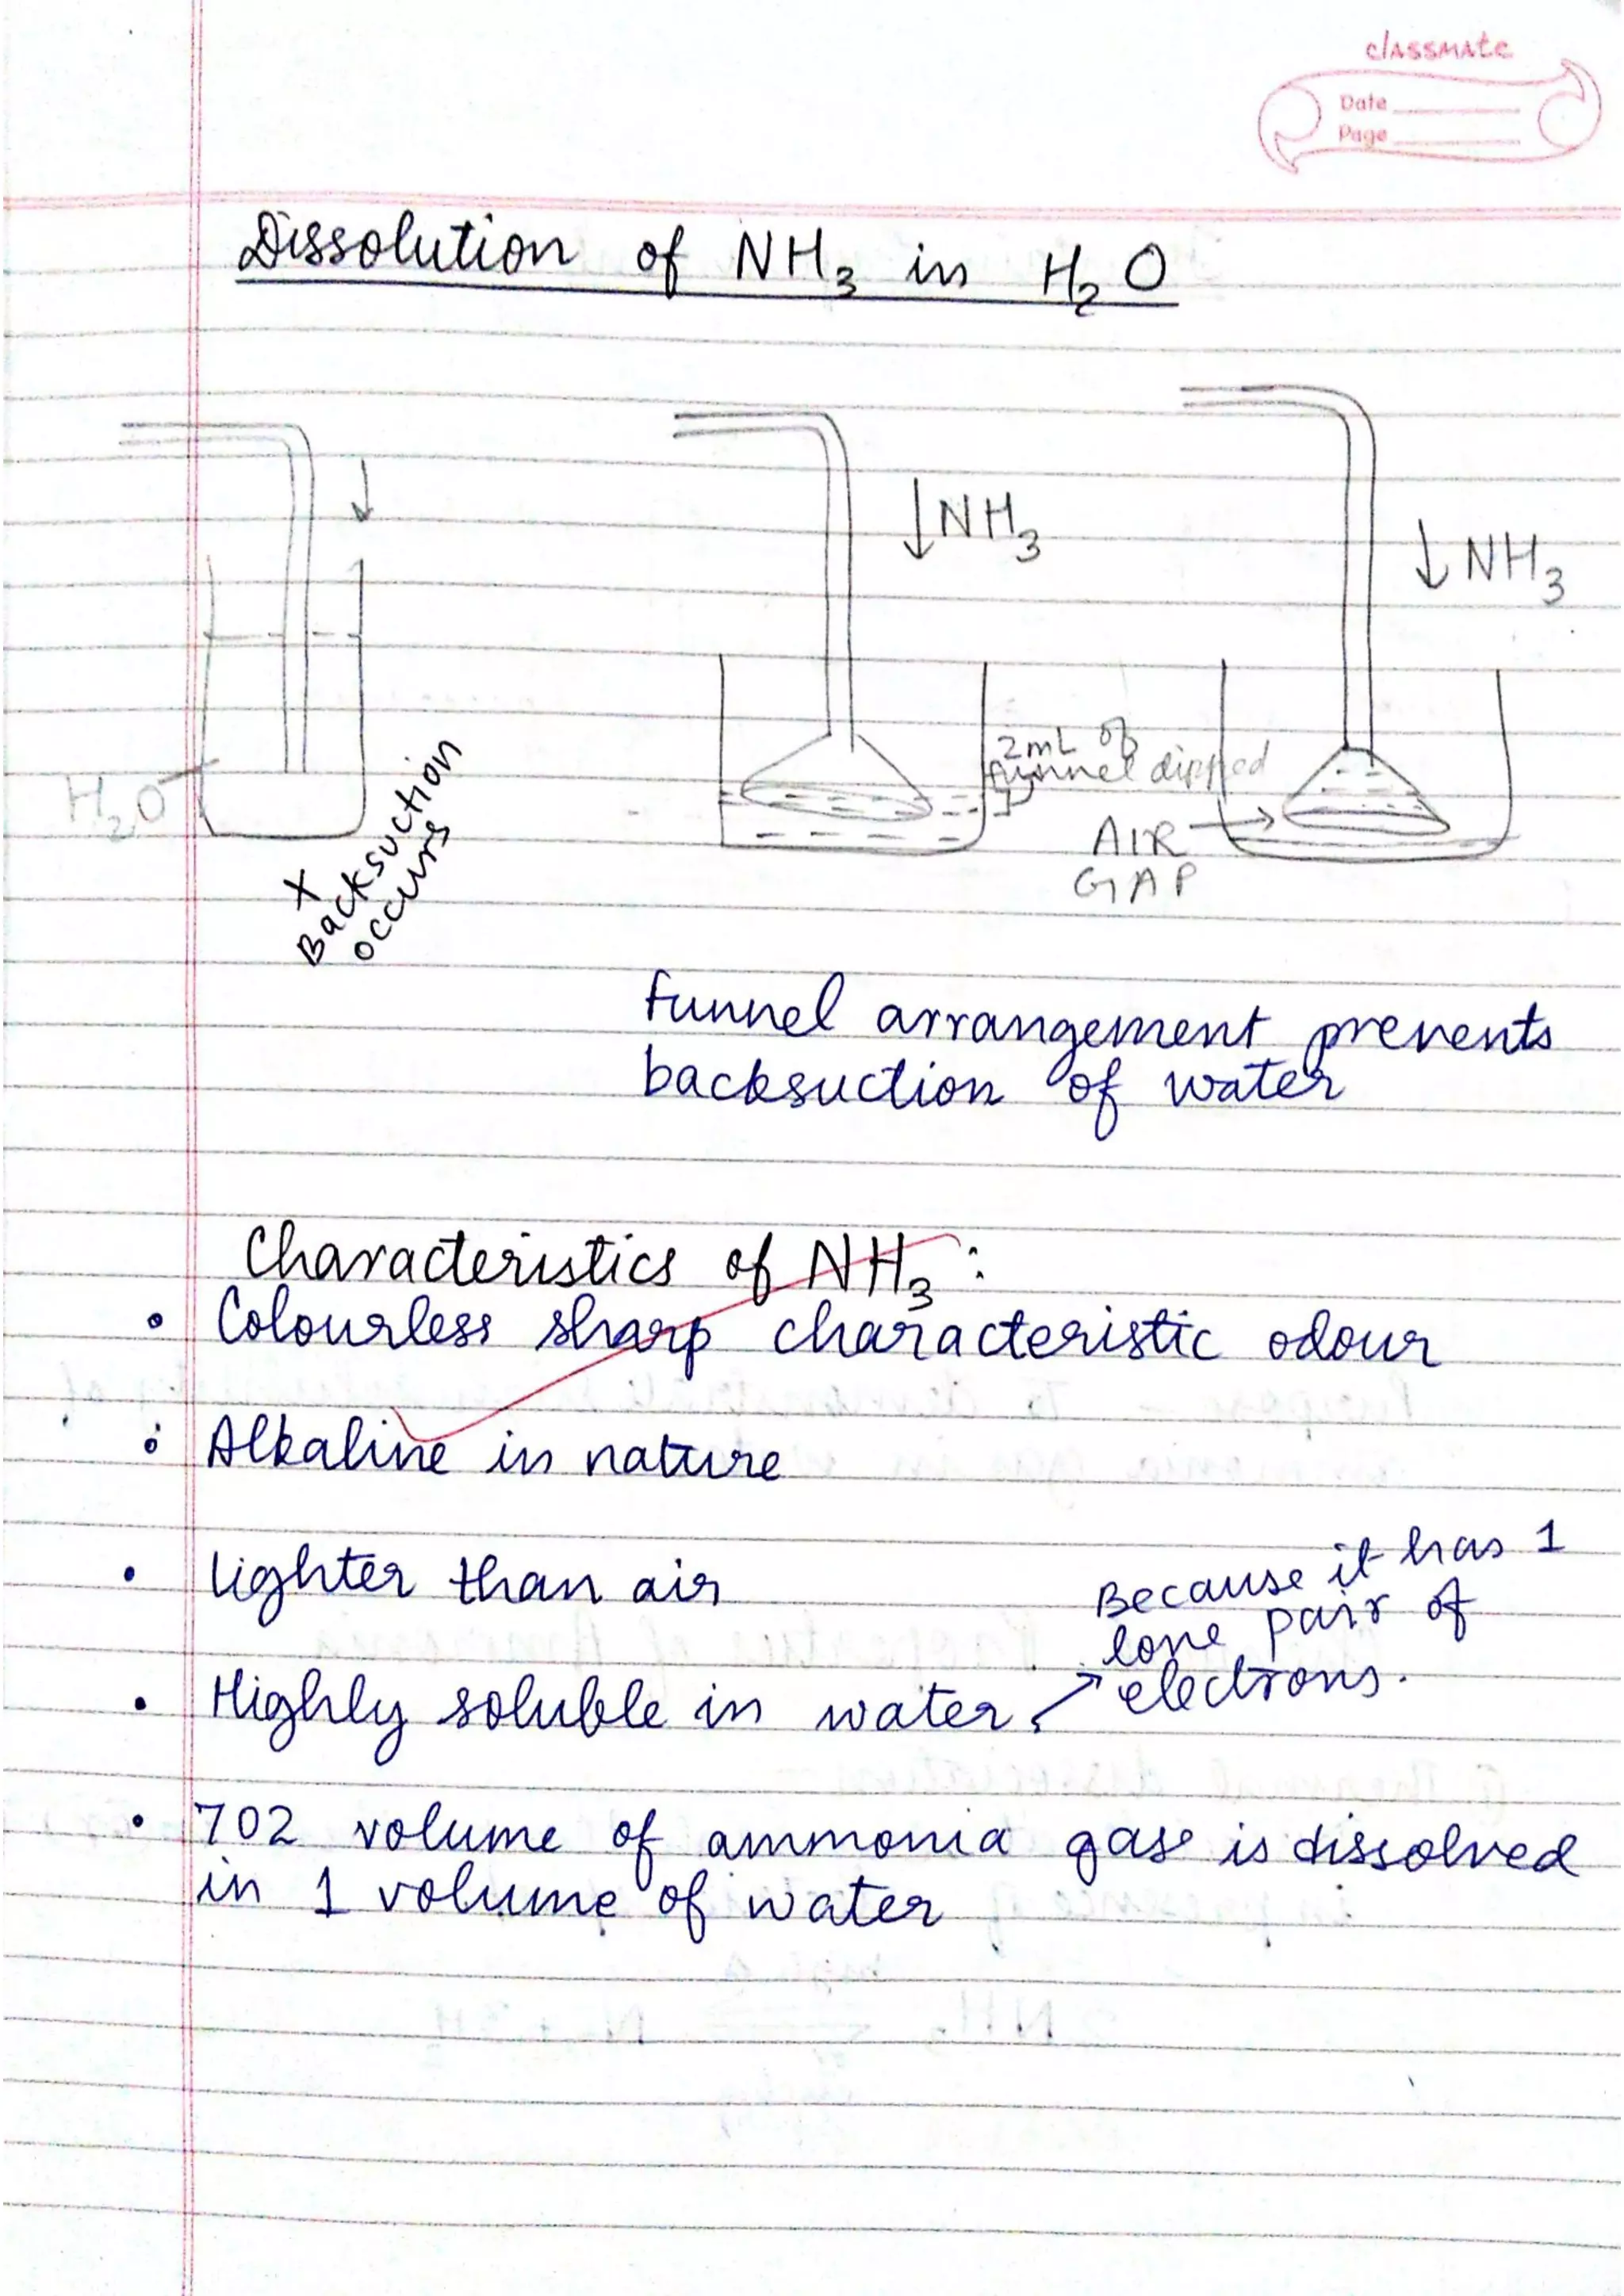 classmate
Date
Page
Dissolution of NH₃ in H₂O
↓NH₃
↓NH₃
2mL of
funnel dipped
H₂O
AIR
GAP
X
Backsuction
occurs
Funnel arrangement prevents
backsuction of water
Characteristics of NH₃:
• Colourless sharp characteristic odour
• Alkaline in nature
• lighter than air
Because it has 1
lone pair of
electrons.
• Highly soluble in water
• 702 volume of ammonia gase is dissolved
in 1 volume of water